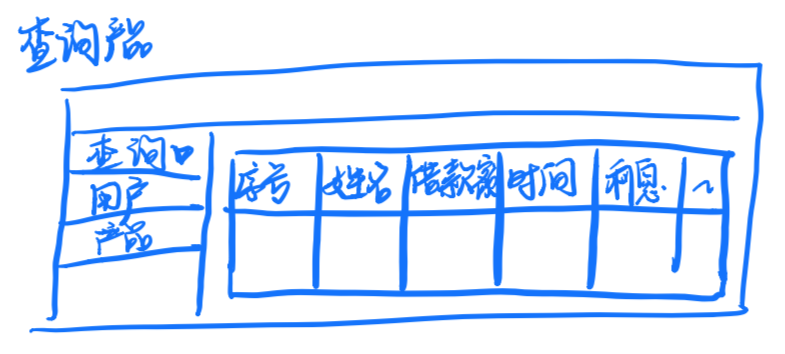 查询产品
查询
用户
产品
序号 姓名 借款额 时间 利息 ~